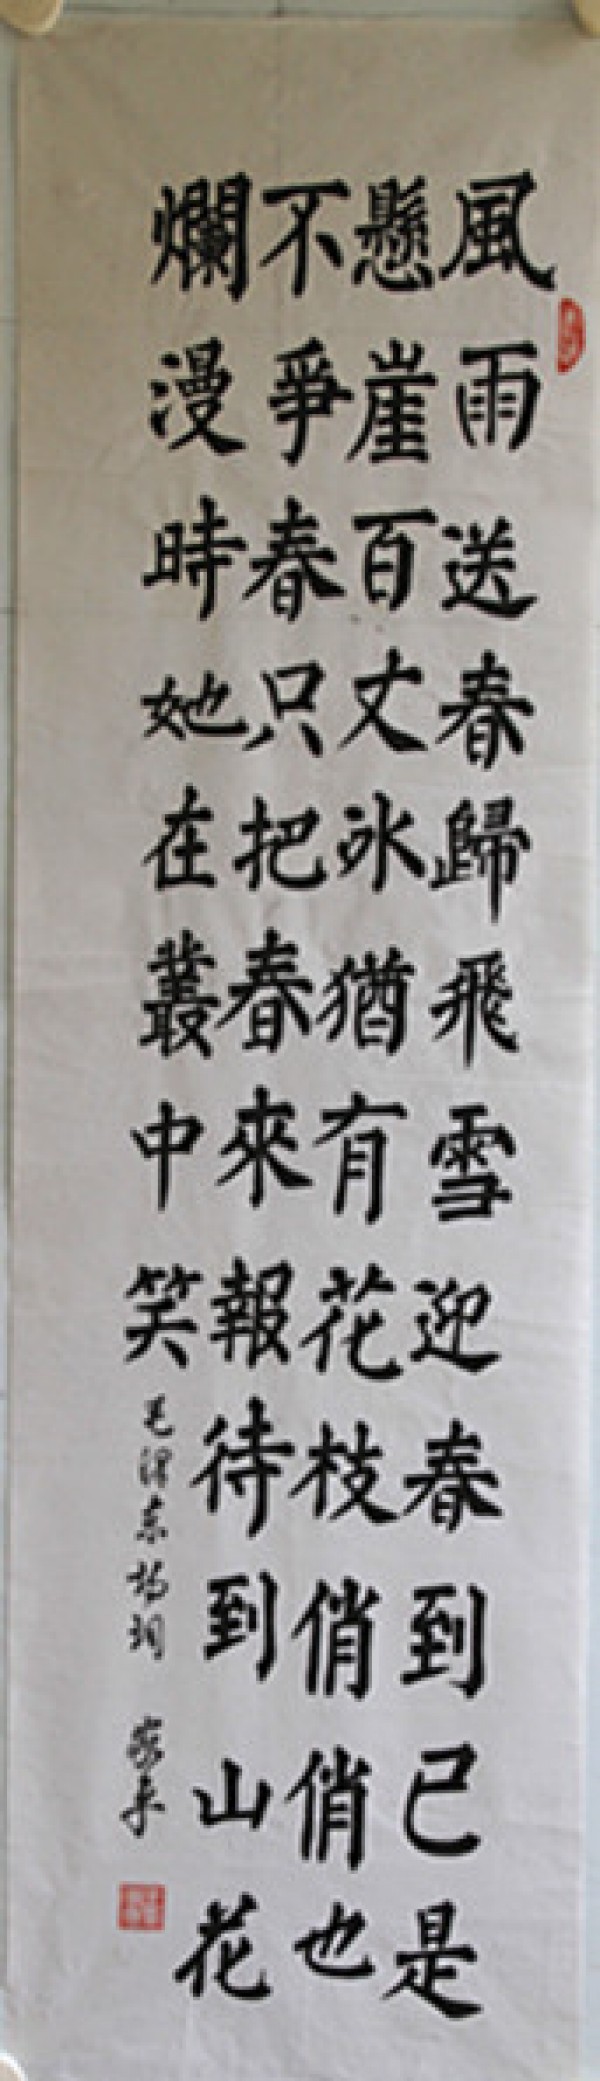 風雨送春歸飛雪迎春到已是
懸崖百丈冰猶有花枝俏俏也
不爭春只把春來報待到山花
爛漫時她在叢中笑
毛澤东詩词